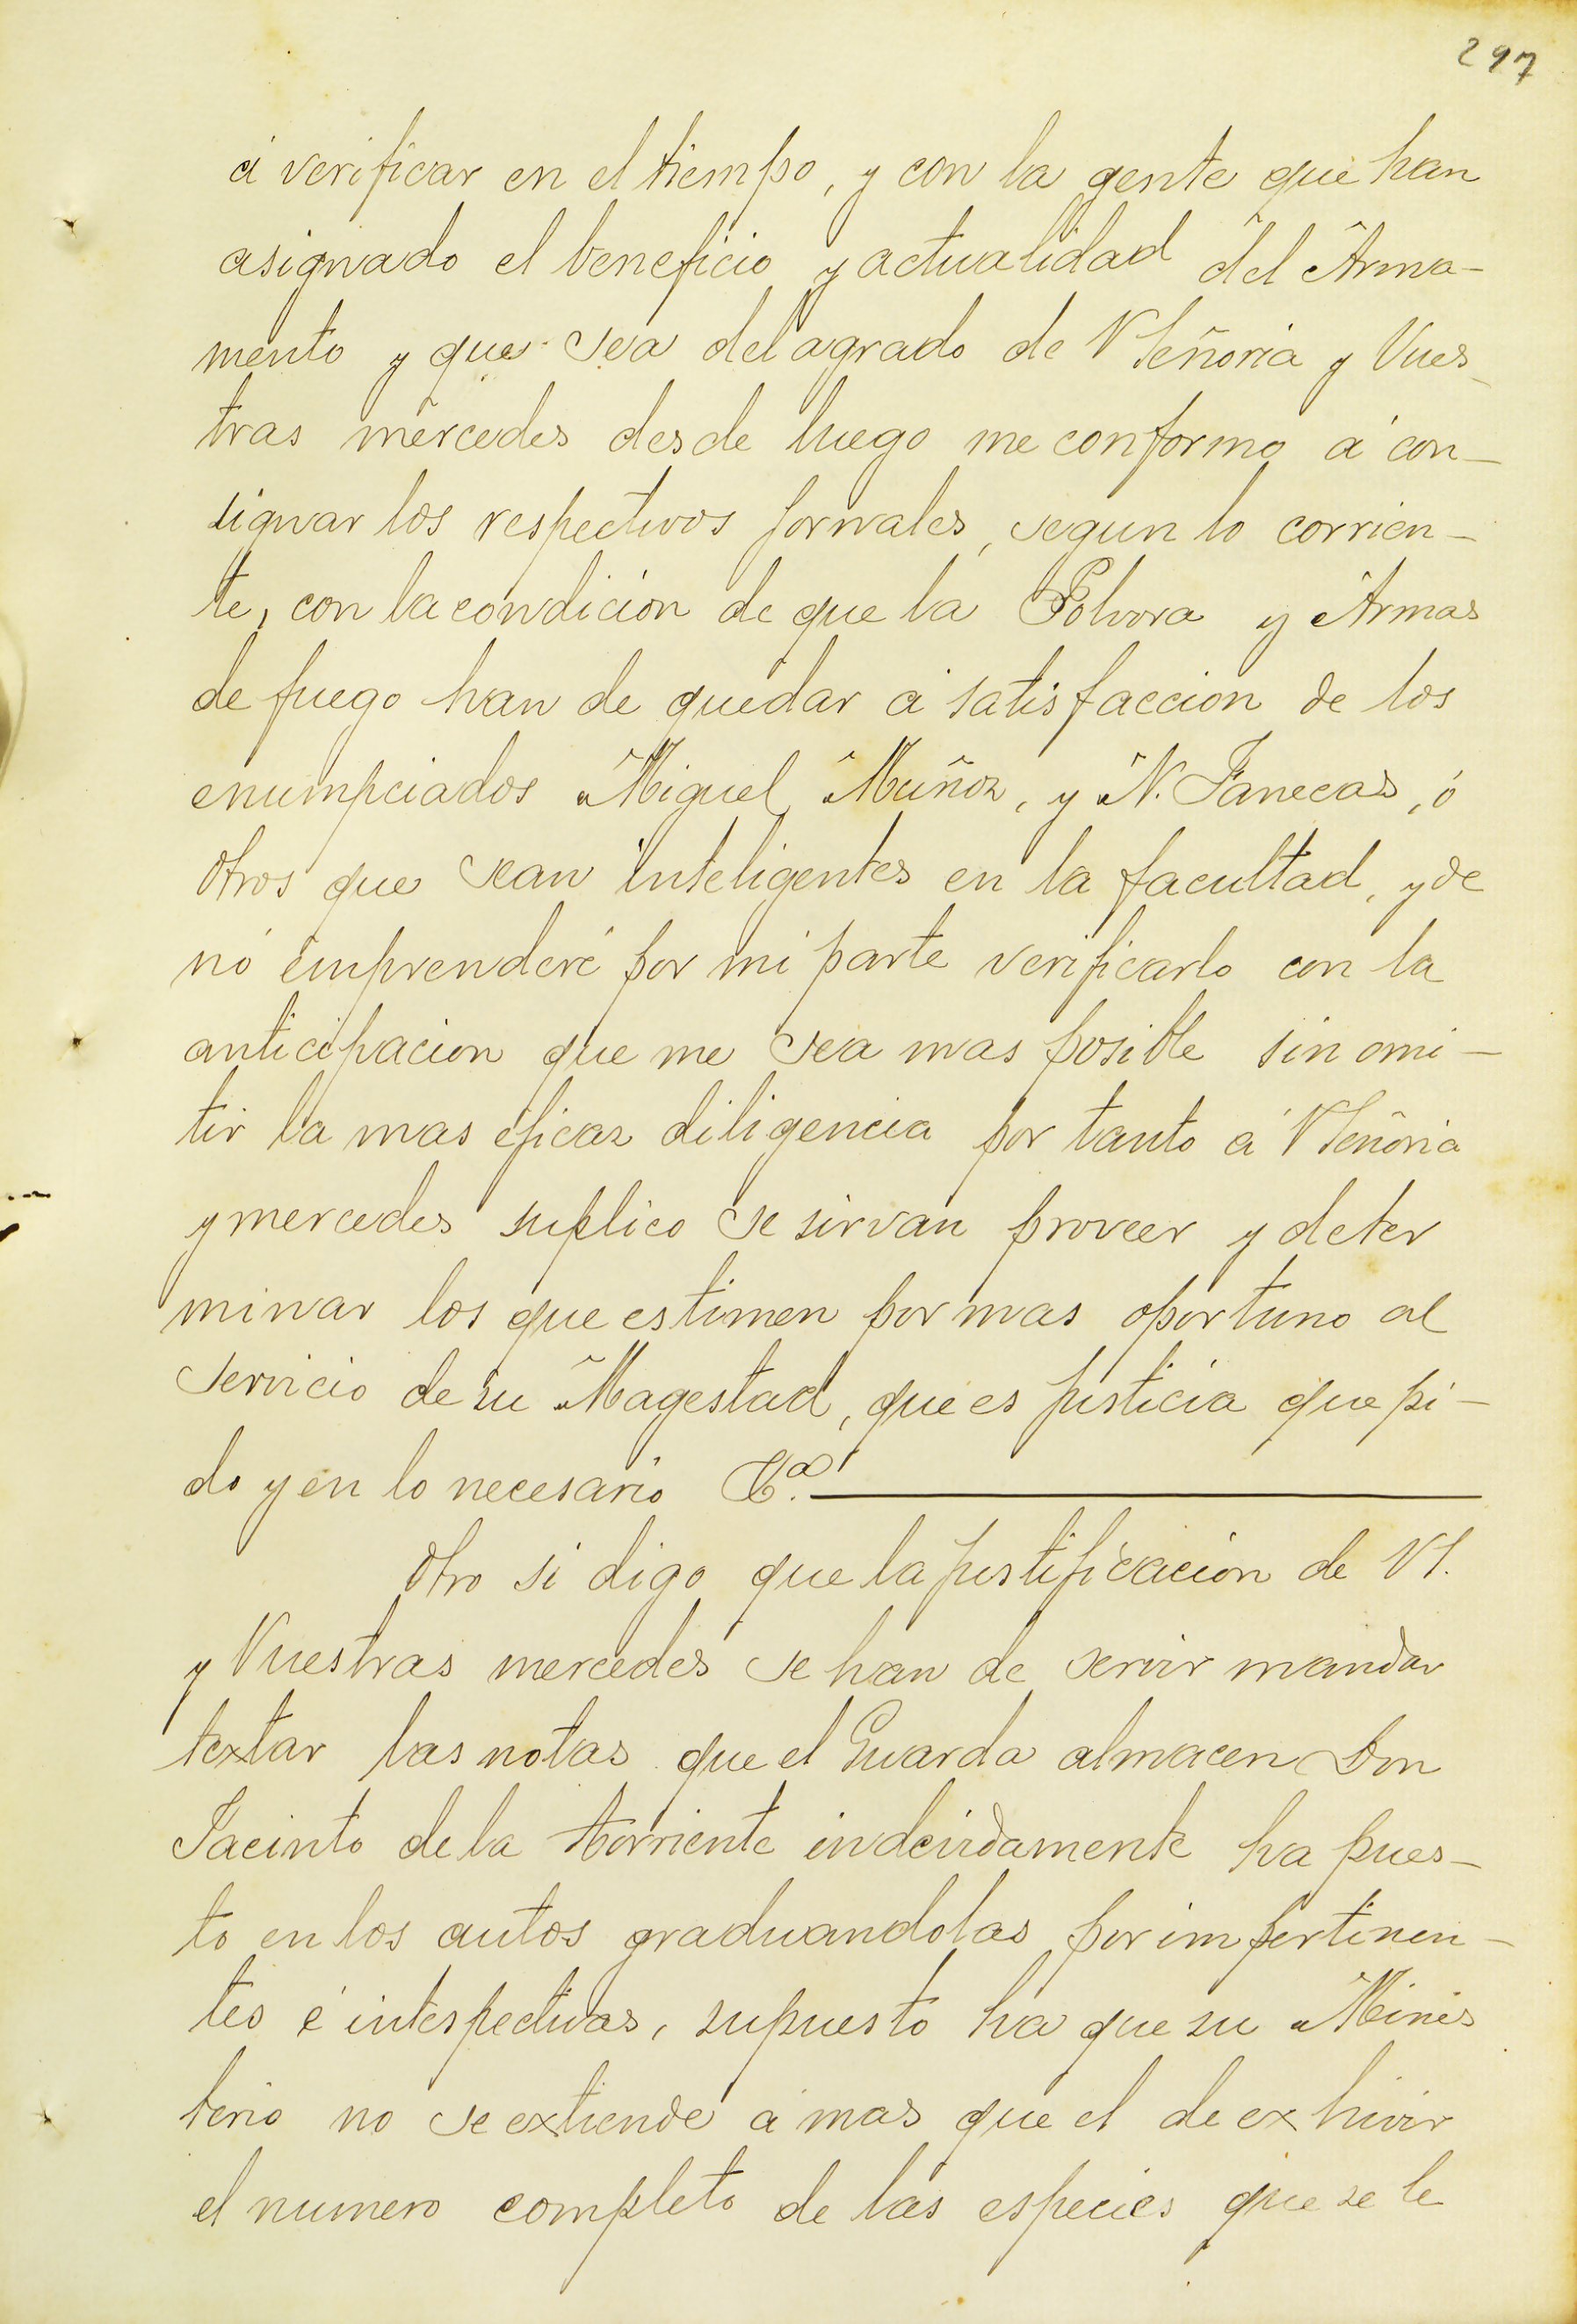 297
á verificar en el tiempo, y con la gente que han
asignado el beneficio y actualidad del Arma-
mento y que sea del agrado de V Señoria y Vues-
tras mercedes desde luego me conformo á con-
signar los respectivos jornales, segun lo corrien-
te, con la condición de que la Polvora y Armas
de fuego han de quedar á satisfaccion de los
enumpciados Miguel Muñoz, y N. Fanecas, ó
otros que sean inteligentes en la facultad, y de
nó emprenderé por mi parte verificarlo con la
anticipacion que me sea mas posible sin omi-
tir la mas eficaz diligencia por tanto á V Señoria
y mercedes suplico se sirvan proveer y deter
minar los que estimen por mas oportuno al
servicio de su Magestad, que es justicia que pi-
do y en lo necesario &.ª
Otro si digo que la justificación de VS.
y Vuestras mercedes se han de servir mandar
textar las notas que el Guarda almacen Don
Jacinto de la Torriente indevidamente ha pues-
to en los autos graduandolas por impertinen-
tes é intespectivas, supuesto ha que su Minis
terio no se extiende á mas que el de exhivir
el numero completo de las especies que se le